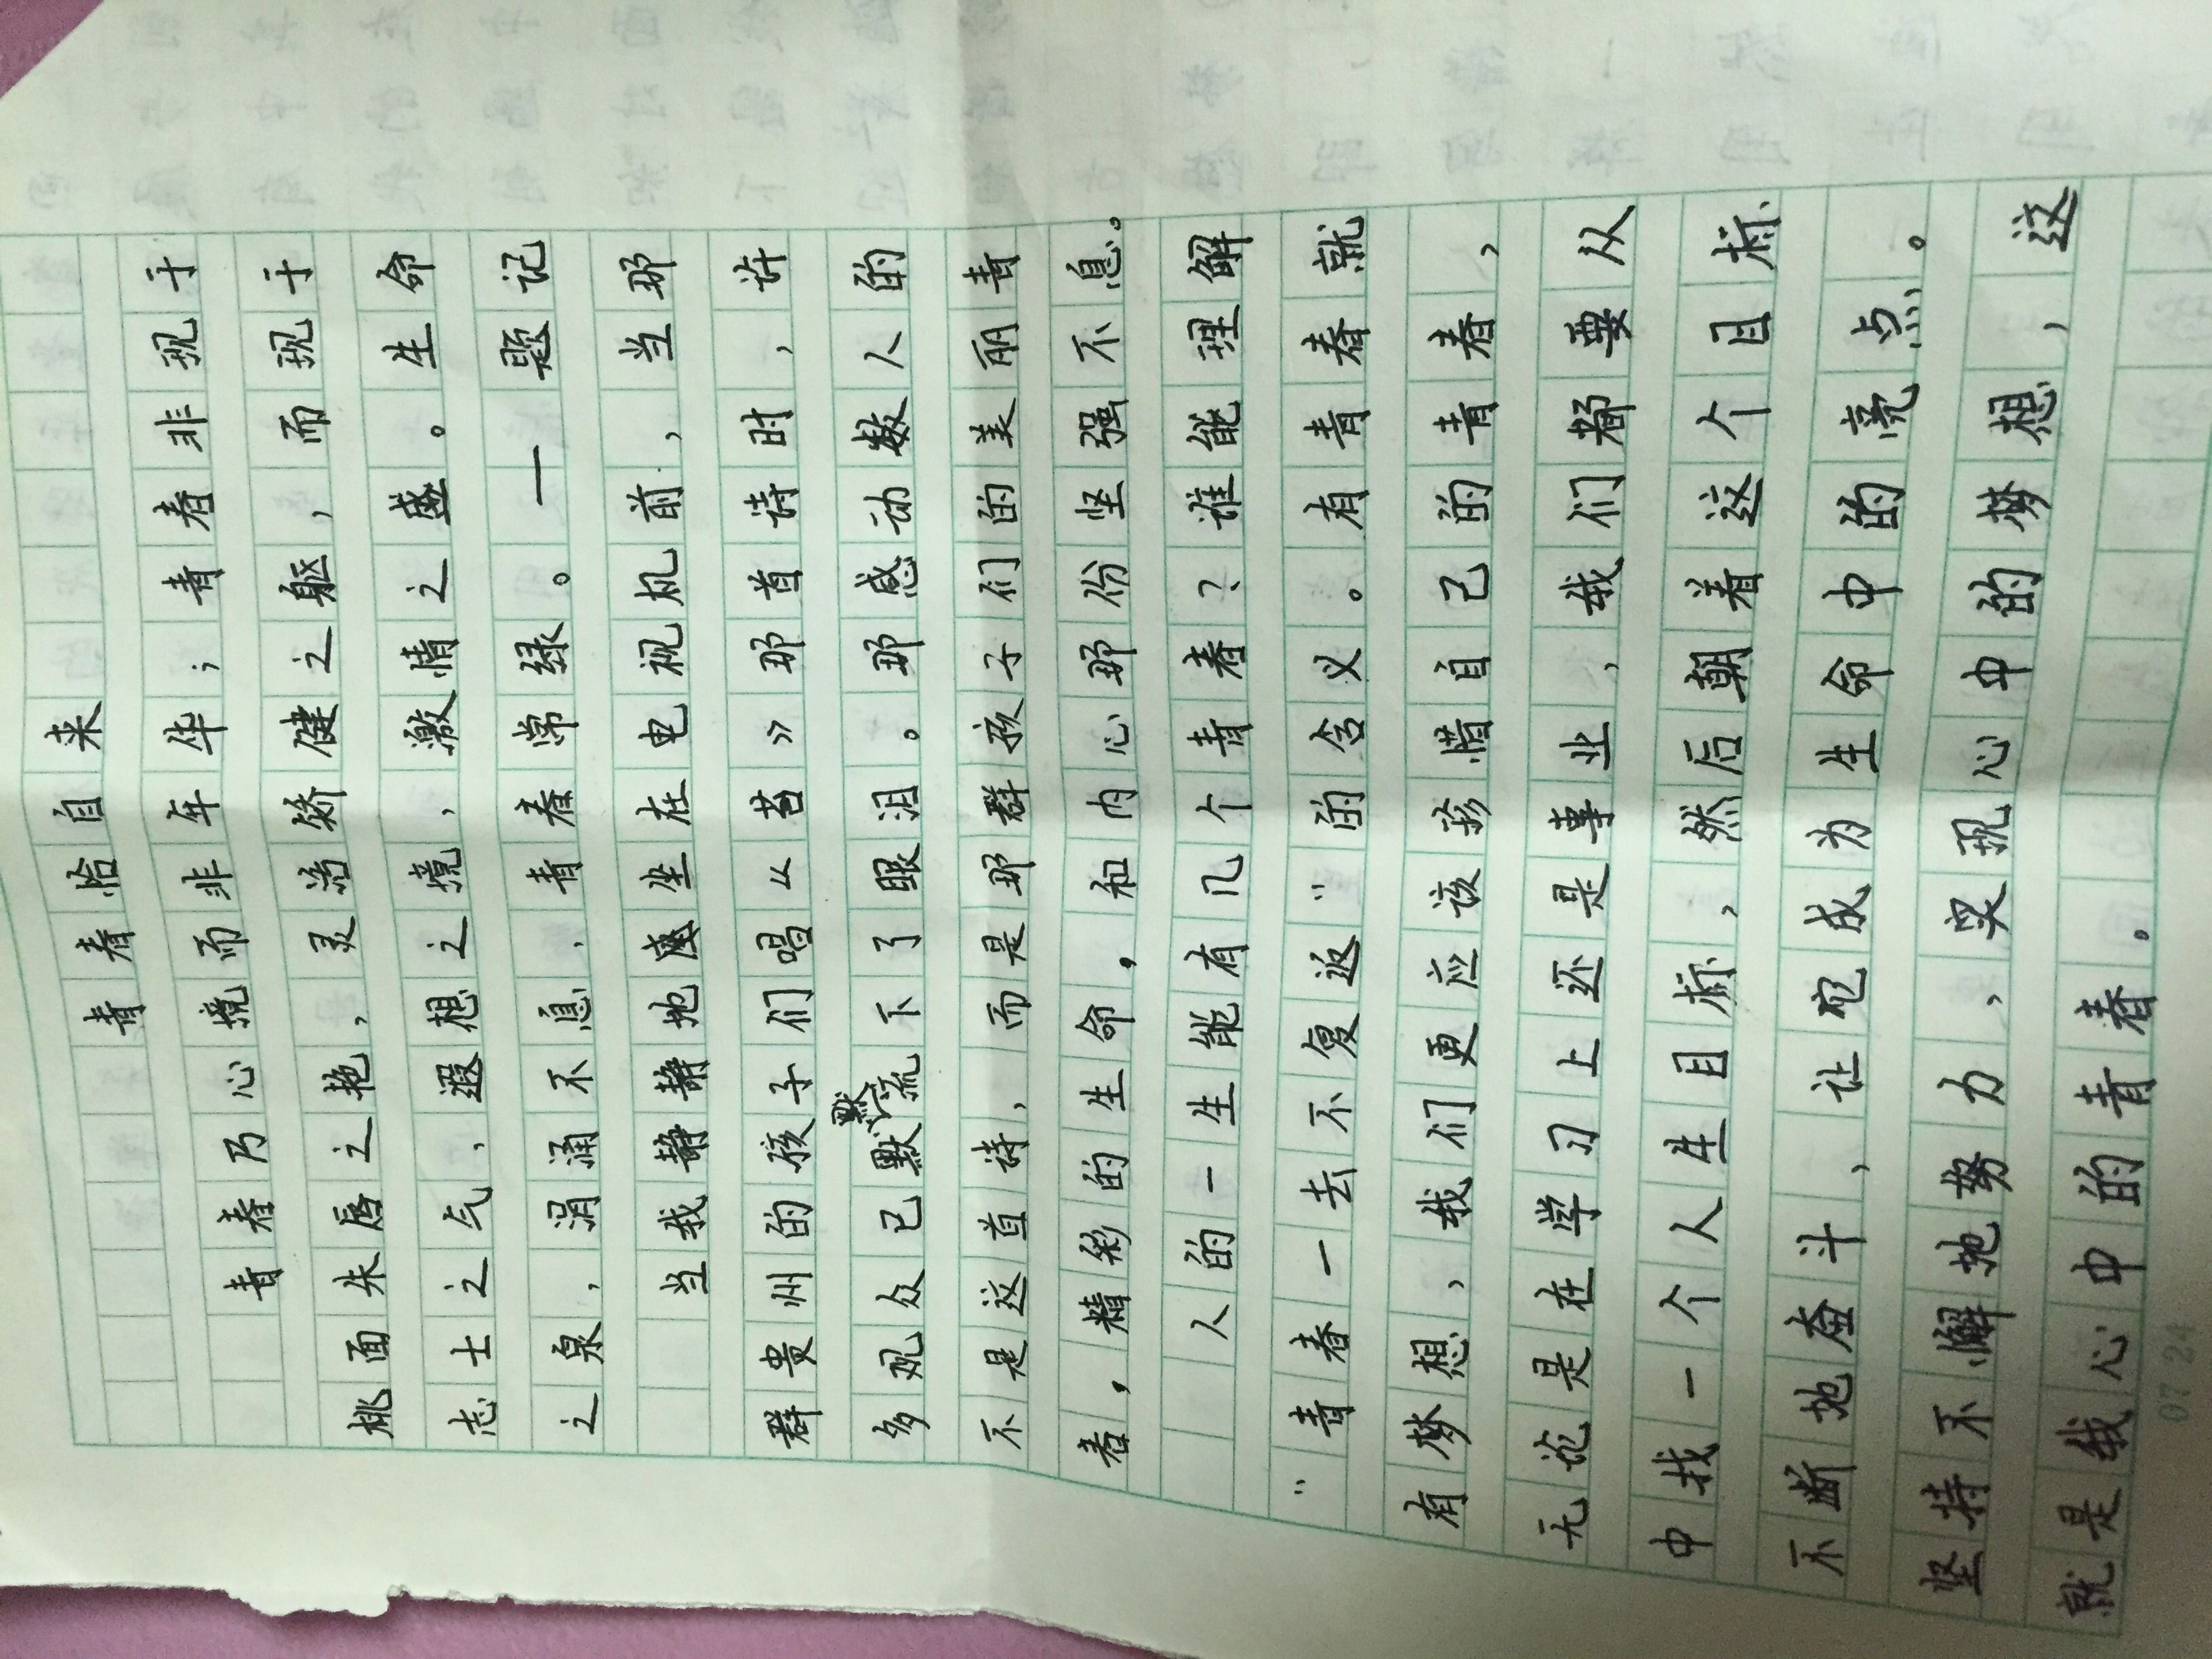 青春恰自来
青春乃心境而非年华；青春非现于
桃面朱唇之艳，灵活矫健之躯，而现于
志士之气，遐想之境，激情之盛。生命
之泉，涓涌不息，青春常绿。 —题记
当我静静地座坐在电视机前，当那
群贵州的孩子们唱《苔》那首诗时，许
多观众已默默流下了眼泪。那感动数人的
不是这首诗，而是那群孩子们的美丽青
春，精彩的生命，和内心那份坚强不息。
人的一生能有几个青春？谁能理解
“青春一去不复返”的含义。有青春就
有梦想，我们更应该珍惜自己的青春，
无论是在学习上还是事业，我们都要从
中找一个人生目标，然后朝着这个目标
不断地奋斗，让它成为生命中的亮点。
坚持不懈地努力，实现心中的梦想，这
就是我心中的青春。
07 24